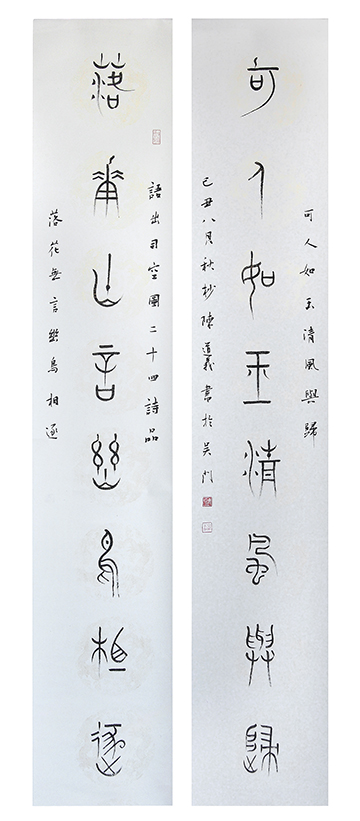 可人如玉清風與歸
可人如玉清風與歸
己丑八月秋杪陳道義書於吳門
語出司空圖二十四詩品
落華亡言幽鳥相逐
落花無言幽鳥相逐